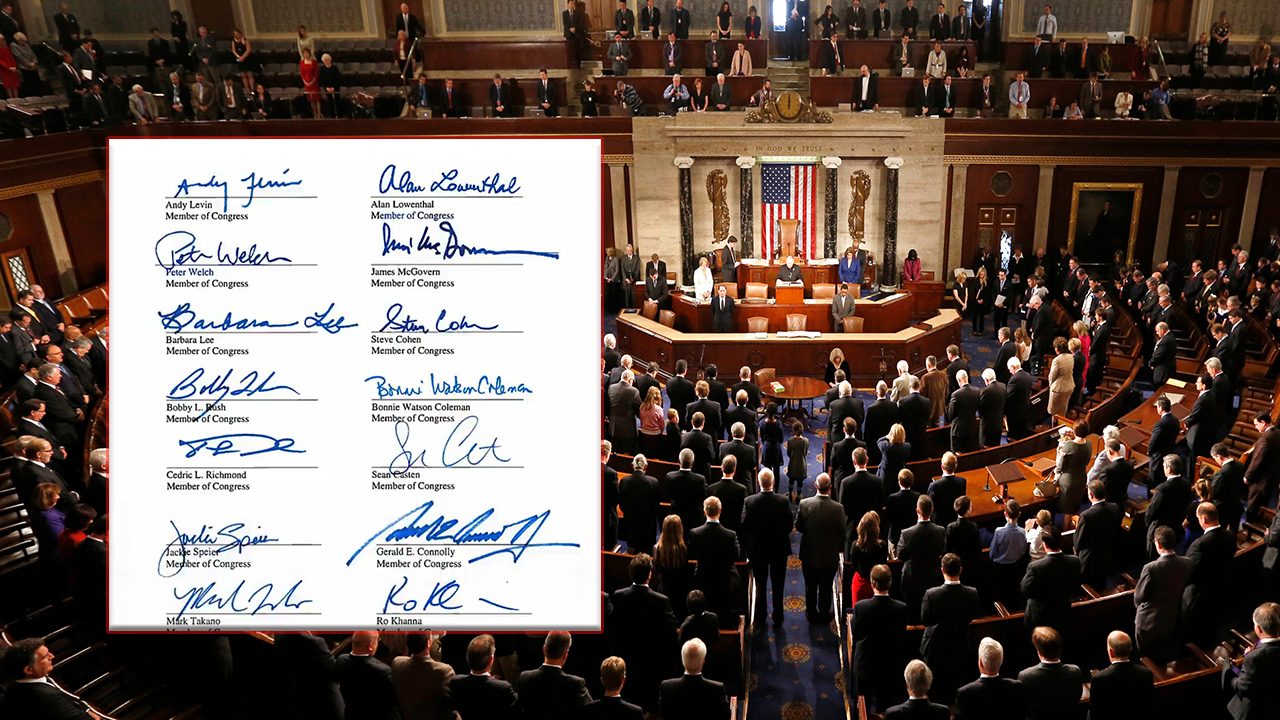 IN GOD WE TRUST
Andy Levin
Andy Levin
Member of Congress
Alan Lowenthal
Alan Lowenthal
Member of Congress
Peter Welch
Peter Welch
Member of Congress
James McGovern
Member of Congress
Barbara Lee
Barbara Lee
Member of Congress
Steve Cohen
Steve Cohen
Member of Congress
Bobby L. Rush
Member of Congress
Bonnie Watson Coleman
Bonnie Watson Coleman
Member of Congress
Cedric L. Richmond
Member of Congress
Sean Casten
Member of Congress
Jackie Speier
Jackie Speier
Member of Congress
Gerald E. Connolly
Member of Congress
Mark Takano
Mark Takano
Member of Congress
Ro Khanna
Member of Congress